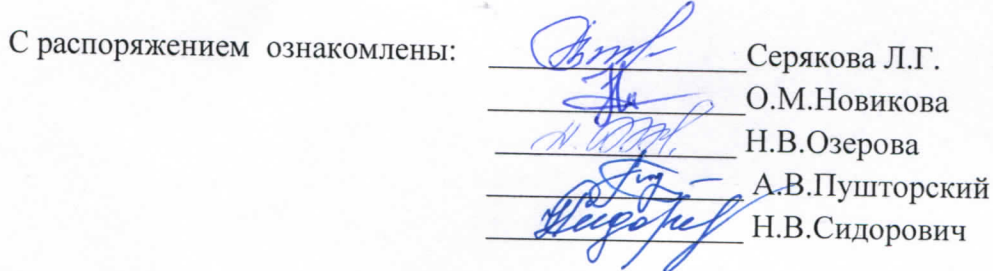 С распоряжением ознакомлены: Серякова Л.Г.
О.М.Новикова
Н.В.Озерова
А.В.Пушторский
Н.В.Сидорович